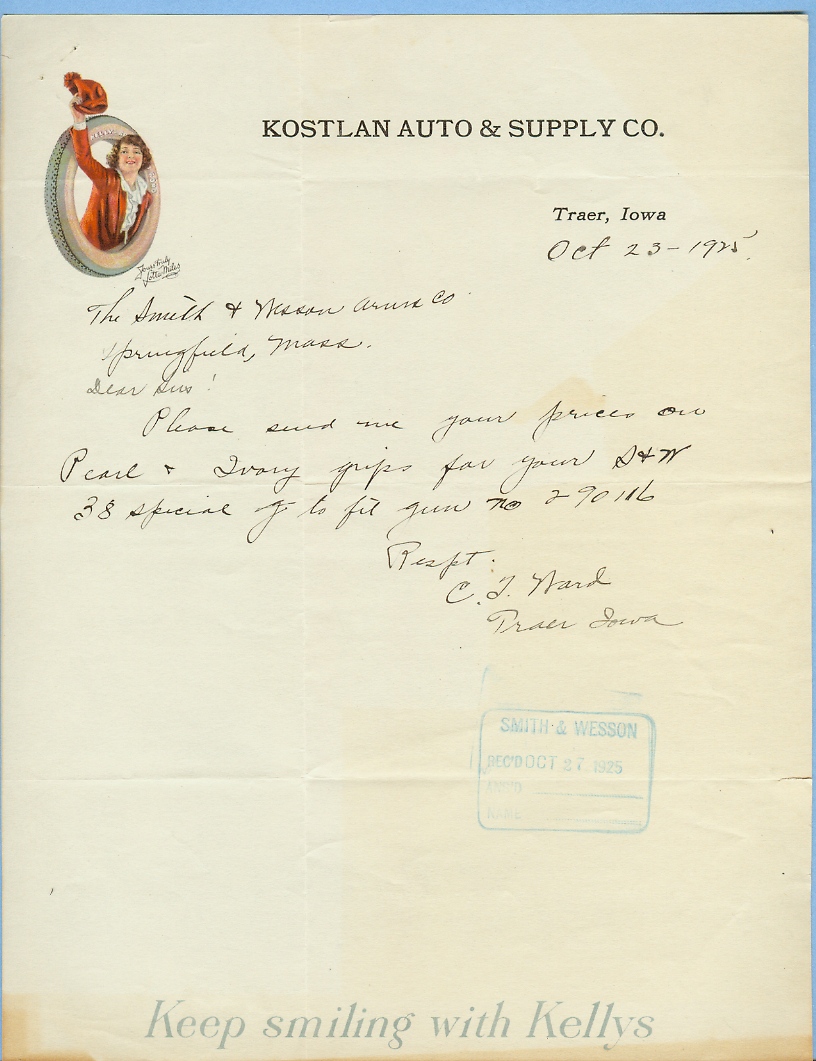 KOSTLAN AUTO & SUPPLY CO.
Yours truly
Lotta Miles
Traer, Iowa
Oct 23-1925.
The Smith & Wesson Arms Co
Springfield, Mass.
Dear Sirs!
Please send me your prices on
Pearl & Ivory grips for your S&W
38 special to fit gun no 290116
Respt.
C. T. Ward
Traer Iowa
SMITH & WESSON
REC'D OCT 27 1925
ANS'D
NAME
Keep smiling with Kellys